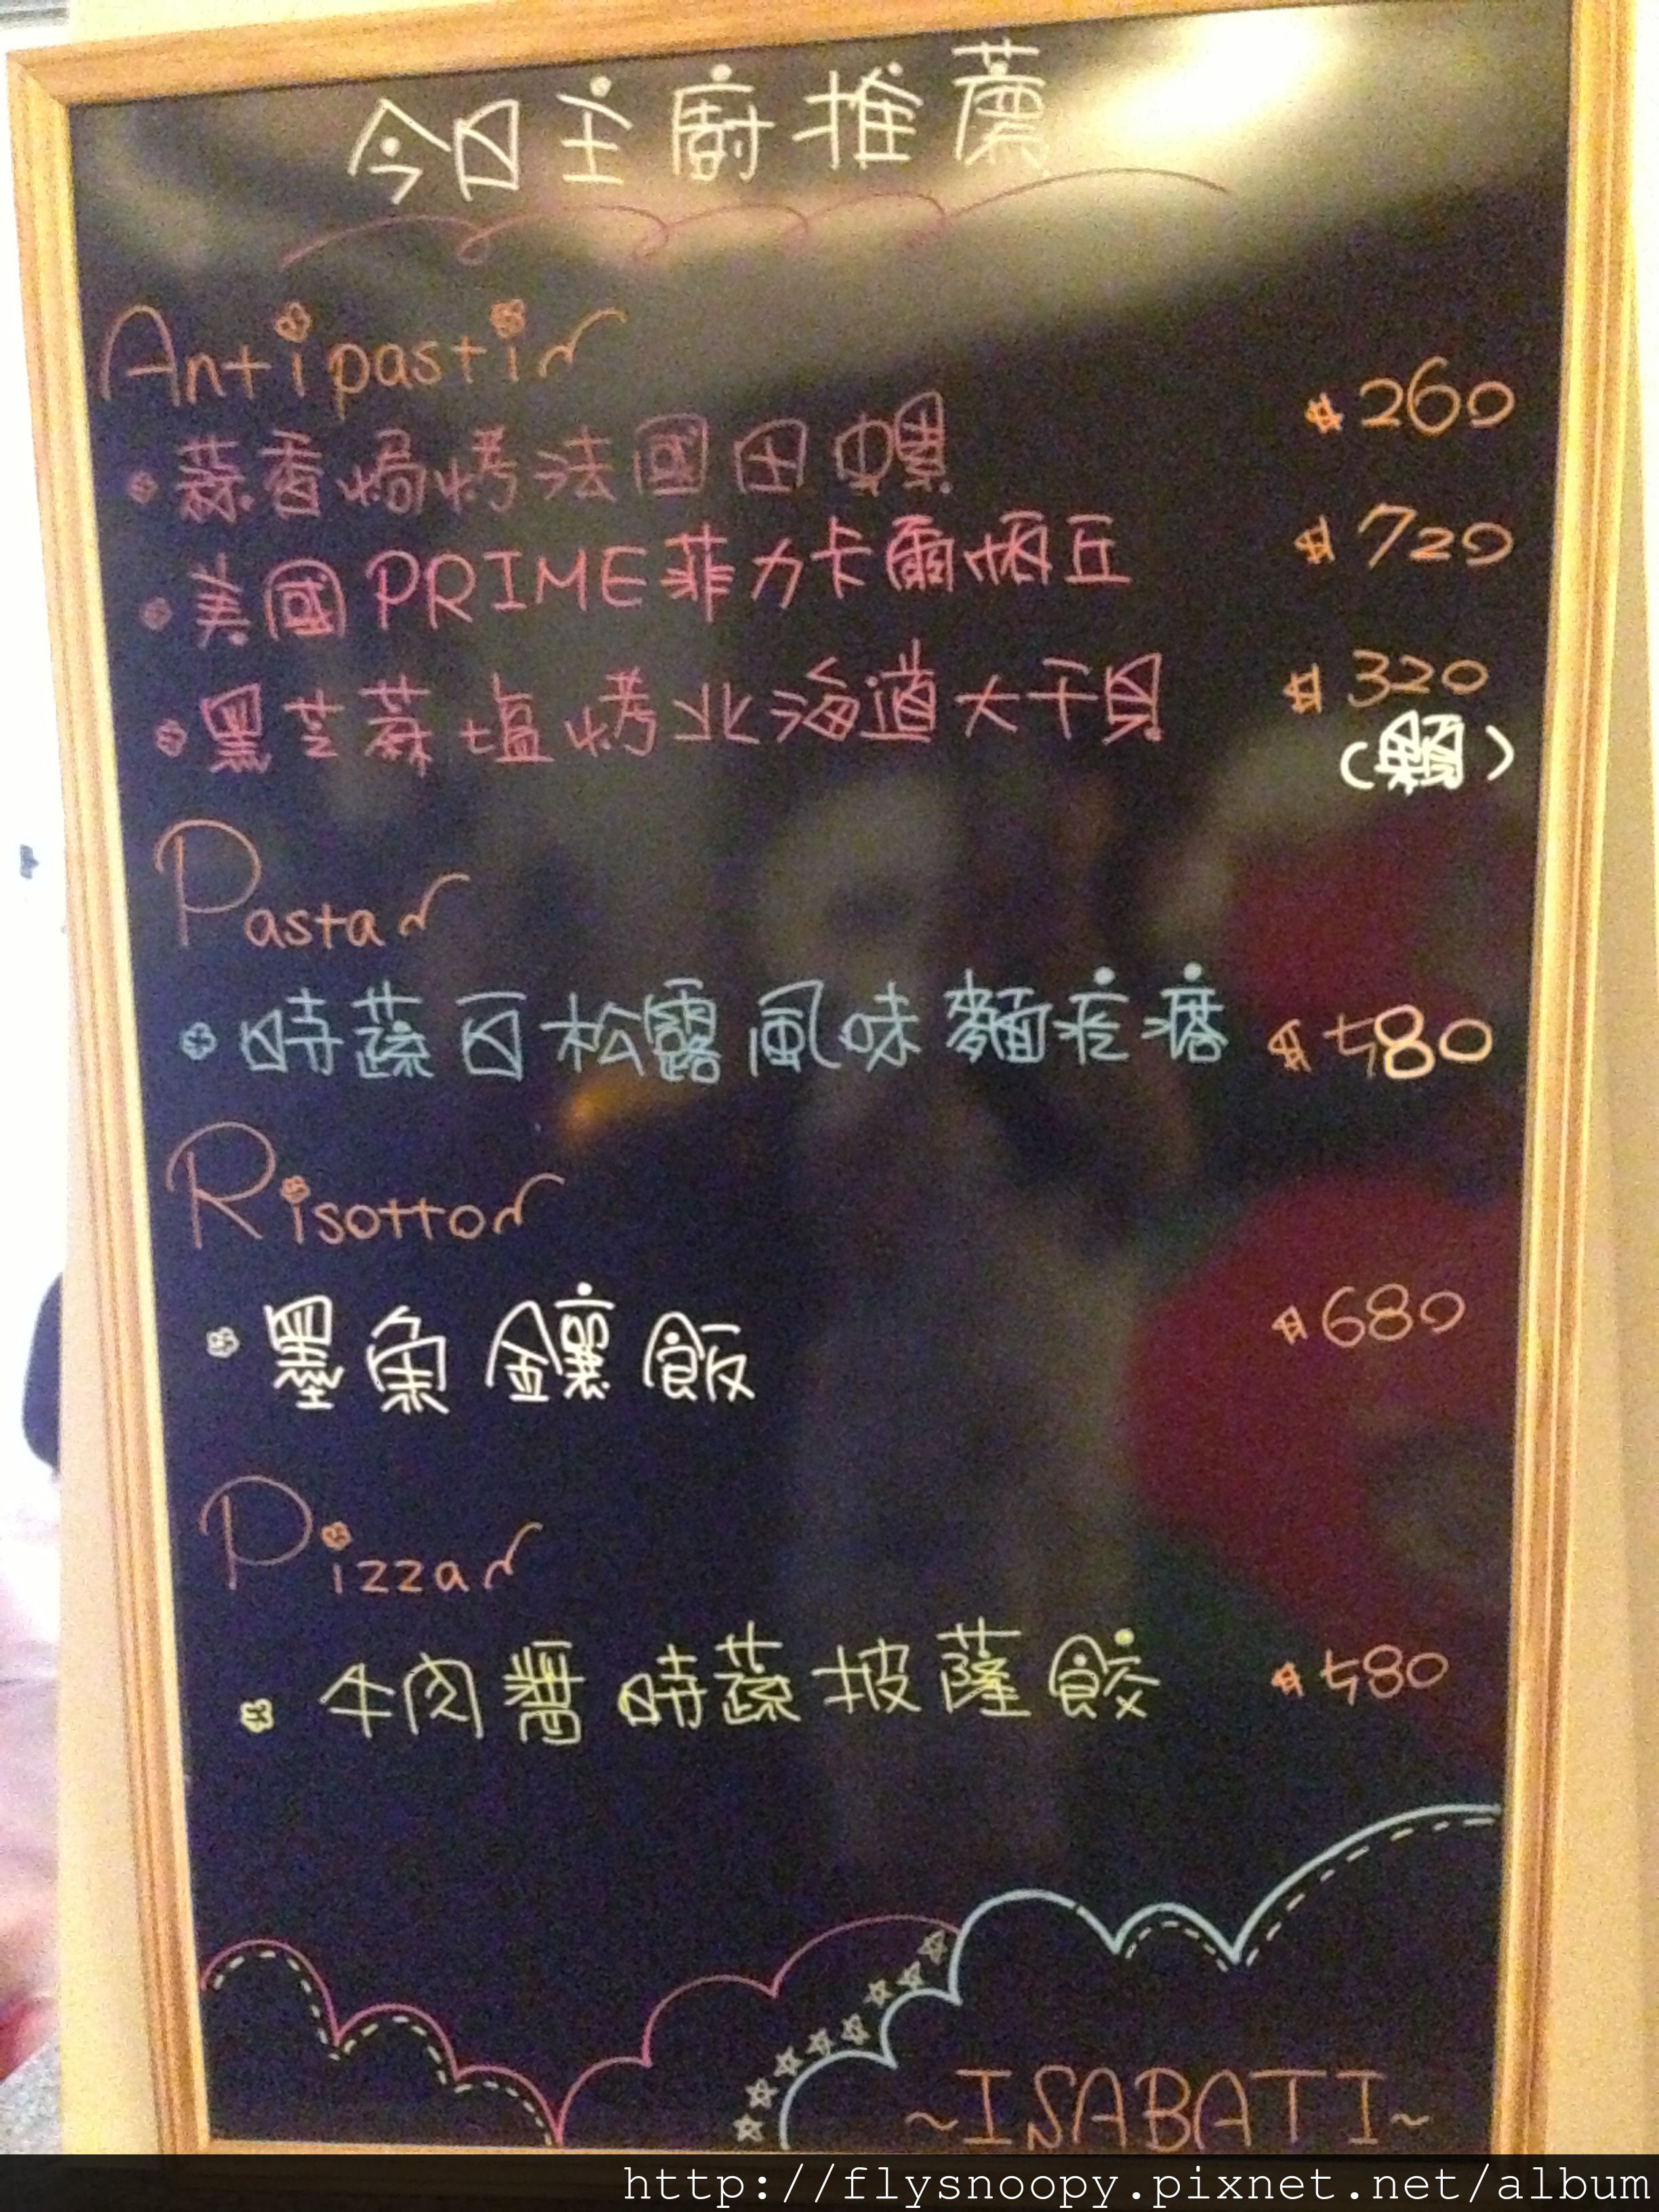 今日主廚推薦
Antipasti
蒜香焗烤法國田螺 $260
美國PRIME菲力卡爾帕丘 $720
黑芝蔴塩烤北海道大干貝 $320
(顆)
Pasta
時蔬白松露風味麵疙瘩 $480
Risotto
墨魚鑲飯 $680
Pizza
牛肉醬時蔬披薩餃 $480
~ISABATI~
http://flysnoopy.pixnet.net/album